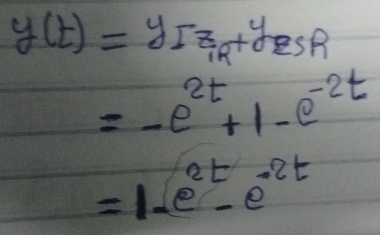 y(t) = yIZIR + yZSR
= -e^2t + 1 - e^-2t
= 1 - e^2t - e^-2t